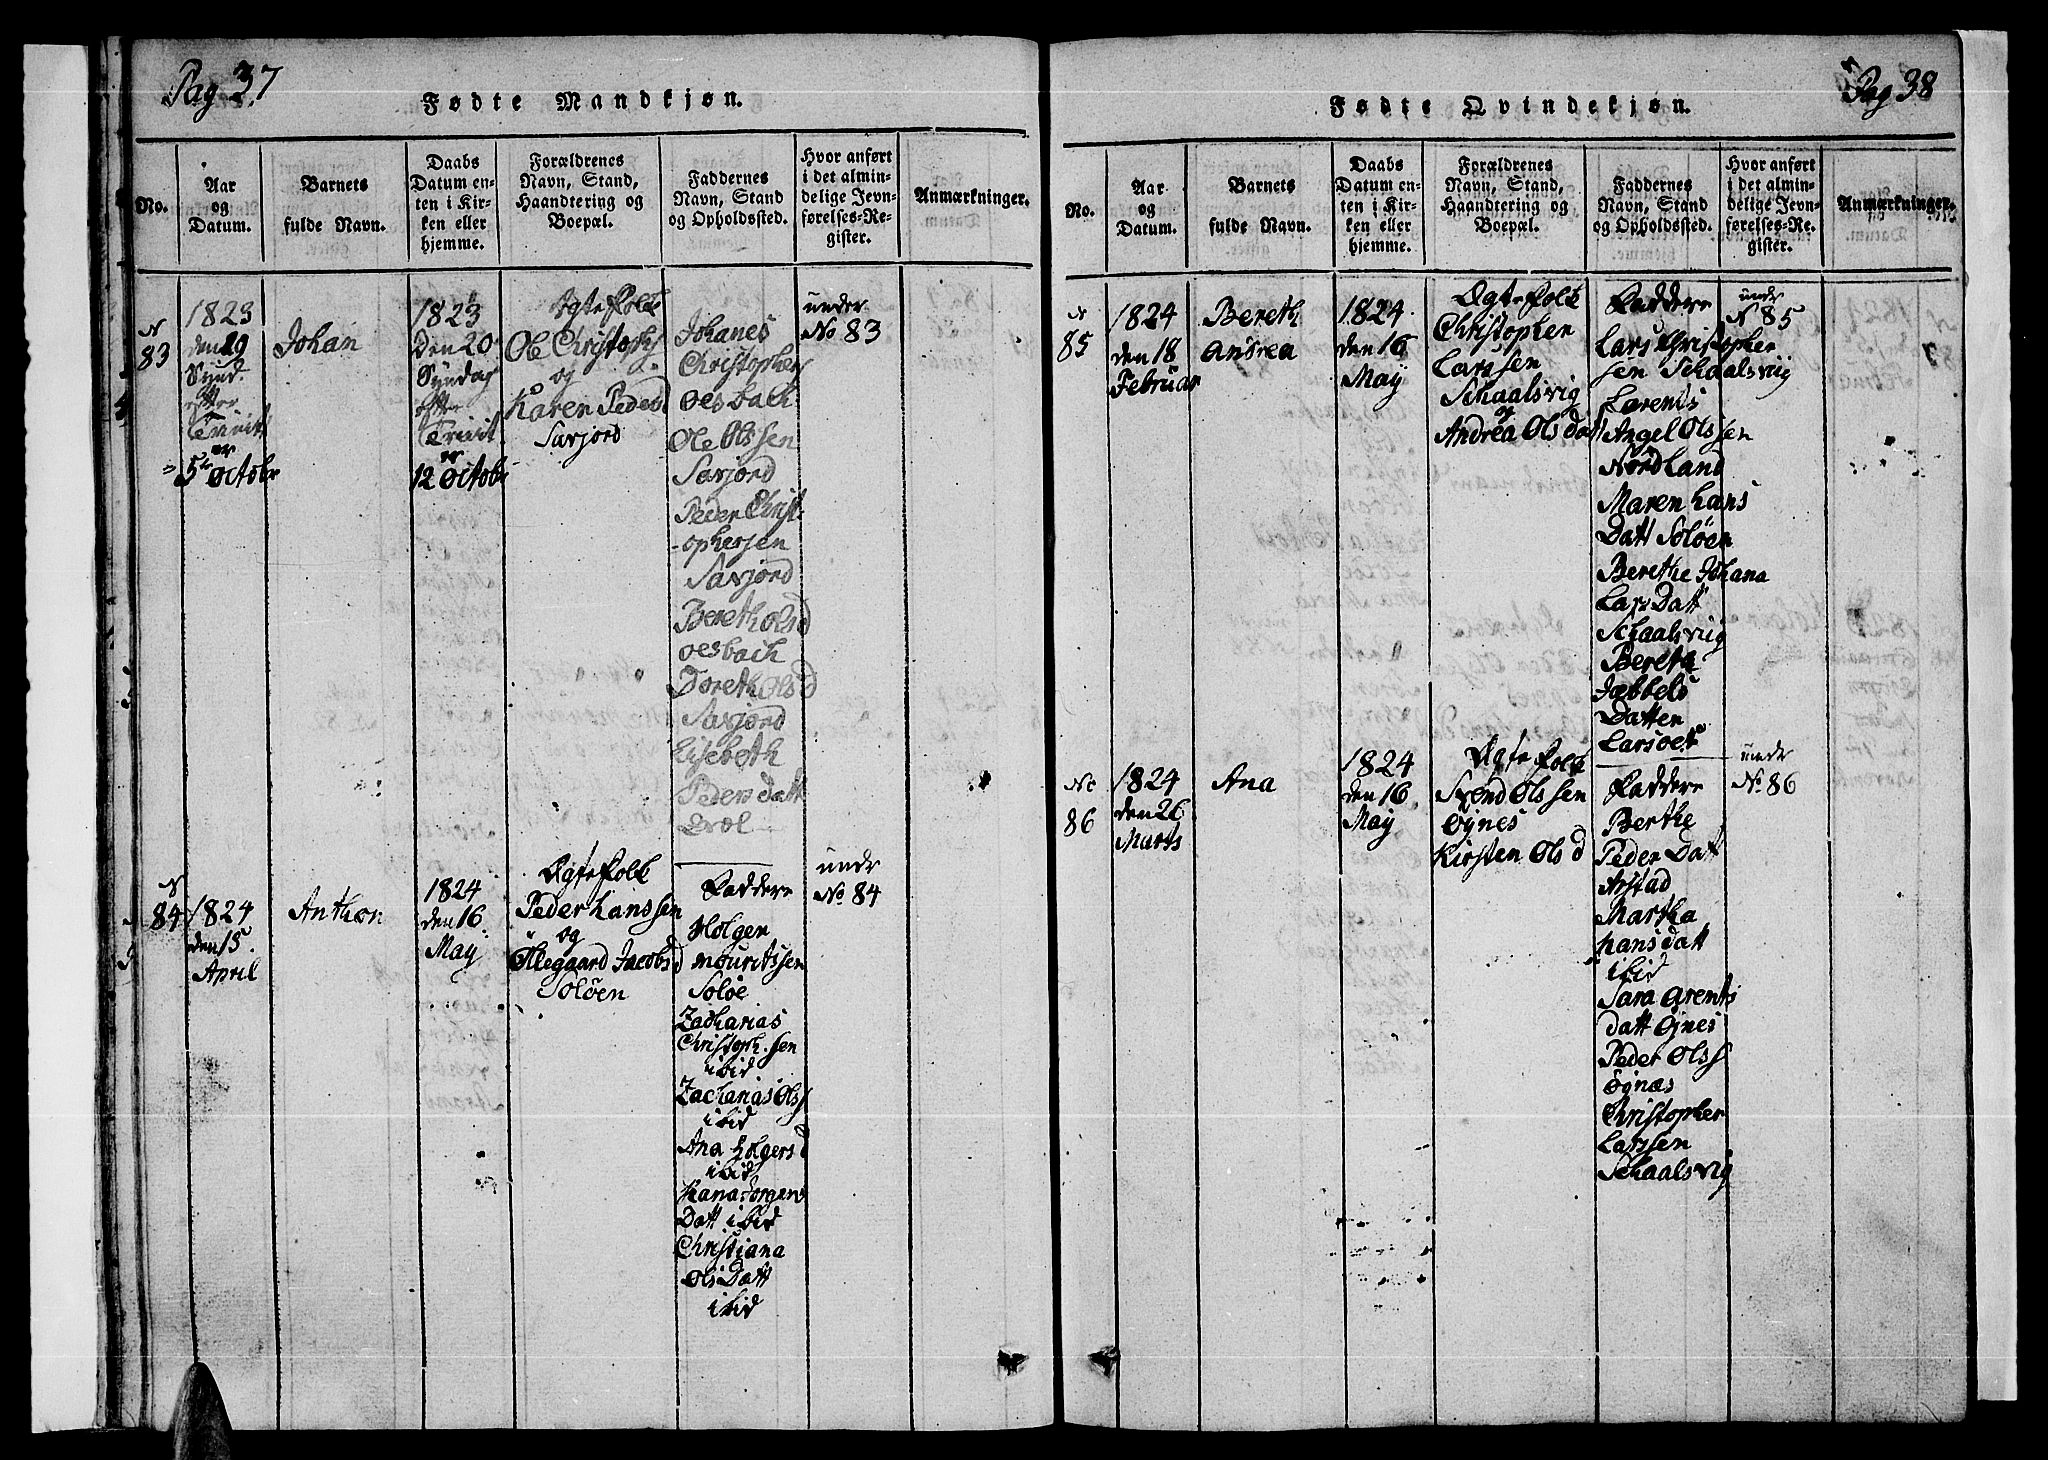 Pag 37
Fødte Mandkjøn.
No.
Aar
og
Datum.
Barnets
fulde Navn.
Daabs
Datum en-
ten i Kir-
ken eller
hjemme.
Forældrenes
Navn, Stand,
Haandtering og
Boepæl.
Faddernes
Navn, Stand
og Opholdssted.
Hvor anført
i det almin-
delige Jevn-
førelses-Re-
gister.
Anmærkninger.
N
83
1823
Synd.
efter
Trinit
er
5te Octobr
Johan
1823
Den 20
Syndag
efter
Trinit
er
12 Octobr
Ægte Folk
Ole Christophs
og
Karen Peders
Savjord
Johanes
Christophers
Oesbach
Ole Olssen
Savjord
Peder Christ
-ophersen
Savjord
Bereth Olsd
oesbach
Doreth Olsd
Savjord
Elsebeth
Peders datt
under
No 83
N
84
1824
den 15
April
Anthon
1824
den 16
May
Ægte Folk
Peder Hanssen
og
Ollegaard Jacobsd
Soløen
Faddere
Holger
Mouritssen
Soløe
Zacharias
Christoph.sen
ibid
Zacharias Olss
ibid
Ana Holgersd
ibid
Hana Jorgens
Datt ibid
Christiana
Ols Datt
ibid
undr
No 84
Pag 38
Fødte Qvindekjøn.
No.
Aar
og
Datum.
Barnets
fulde Navn.
Daabs
Datum en-
ten i Kir-
ken eller
hjemme.
Forældrenes
Navn, Stand,
Haandtering og
Boepæl.
Faddernes
Navn, Stand
og Opholdssted.
Hvor anført
i det almin-
delige Jevn-
førelses-Re-
gister.
Anmærkninger.
N
85
1824
den 18
Februar
Bereth
Andrea
1824
den 16
May
Ægte Folk
Christopher
Larssen
Schaalsvig
og
Andrea Olsdatt
Faddere
Lars Christopher
sen Schaalsviig
Lorents
Angel Olssen
Nordland
Maren Hans
Datt Soløen
Berethe Johana
Lars Datt
Schaalsviig
Beretha
Jæbbels
Datter
Larsoet
under
N 85
No
86
1824
den 26
Marts
Ana
1824
den 16
May
Ægte Folk
Svend Olssen
Øynes
Kirsten Olsd
Faddere
Berthe
Peder Datt
Arstad
Martha
Hansdatt
ibid
Sara Arents
datt Øjnes
Peder Olss
Øgnæs
Christopher
Larssen
Schaalsvig
undr
No 86